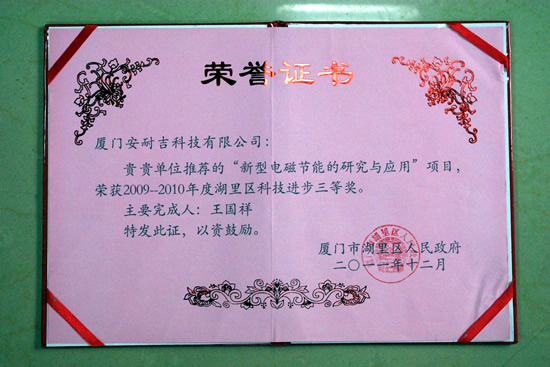 荣誉证书
厦门安耐吉科技有限公司：
贵贵单位推荐的“新型电磁节能的研究与应用”项目，
荣获2009--2010年度湖里区科技进步三等奖。
主要完成人：王国祥
特发此证，以资鼓励。
厦门市湖里区人民政府
二〇一一年十二月